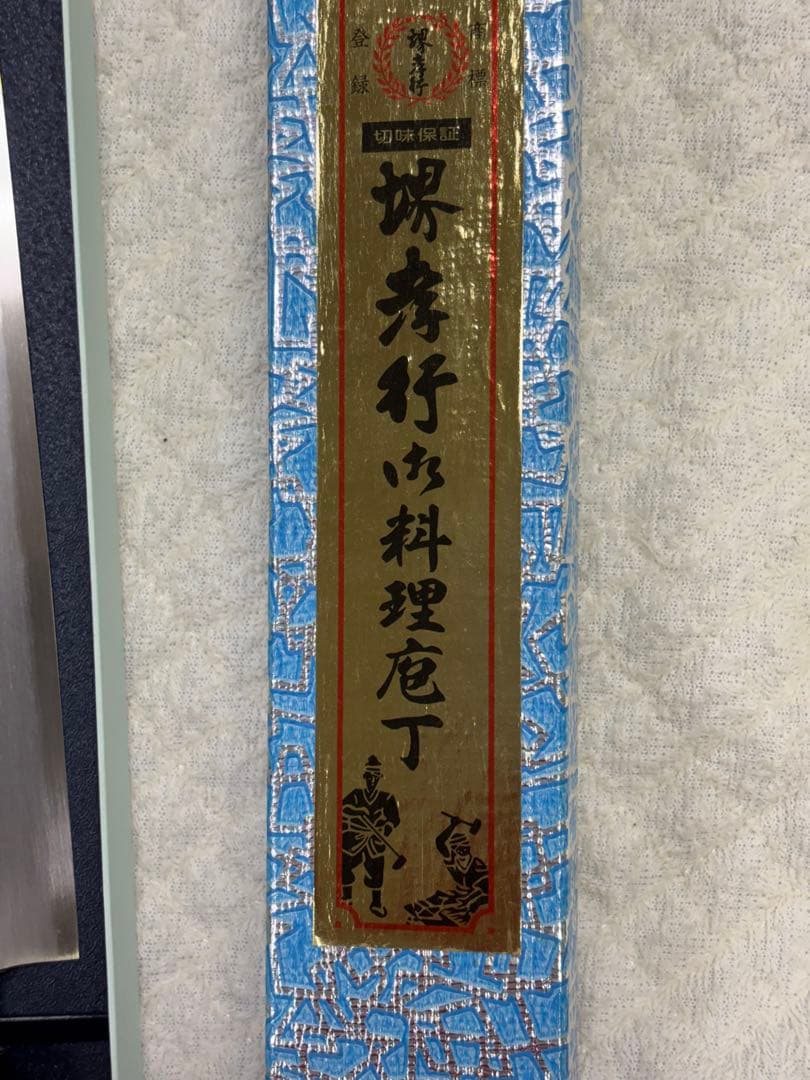 商標
登録
堺孝行
切味保証
堺孝行御料理庖丁